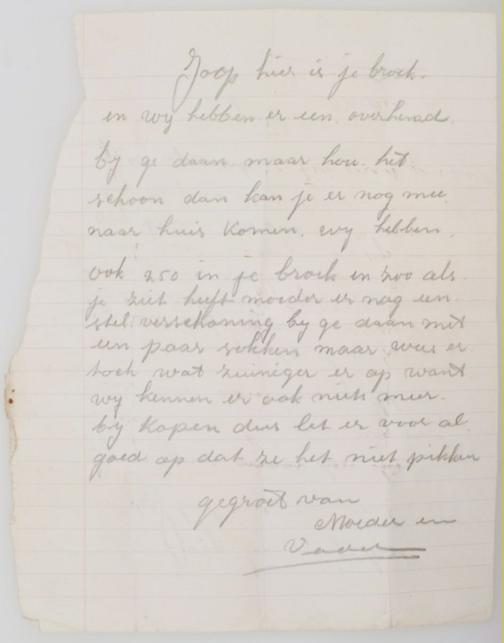 Joop hier is je broek.
en wy hebben er een overhemd
by ge daan maar hou het
schoon dan kan je er nog mee
naar huis komen. wy hebben
ook 250 in je broek en zoo als
je ziet heeft moeder er nog een
stel verschoning by ge daan met
een paar sokken maar wees er
toch wat zuiniger er op want
wy kennen er ook niets meer
by kopen dus let er voor al
goed op dat ze het niet pikken
gegroet van
Moeder en
Vader